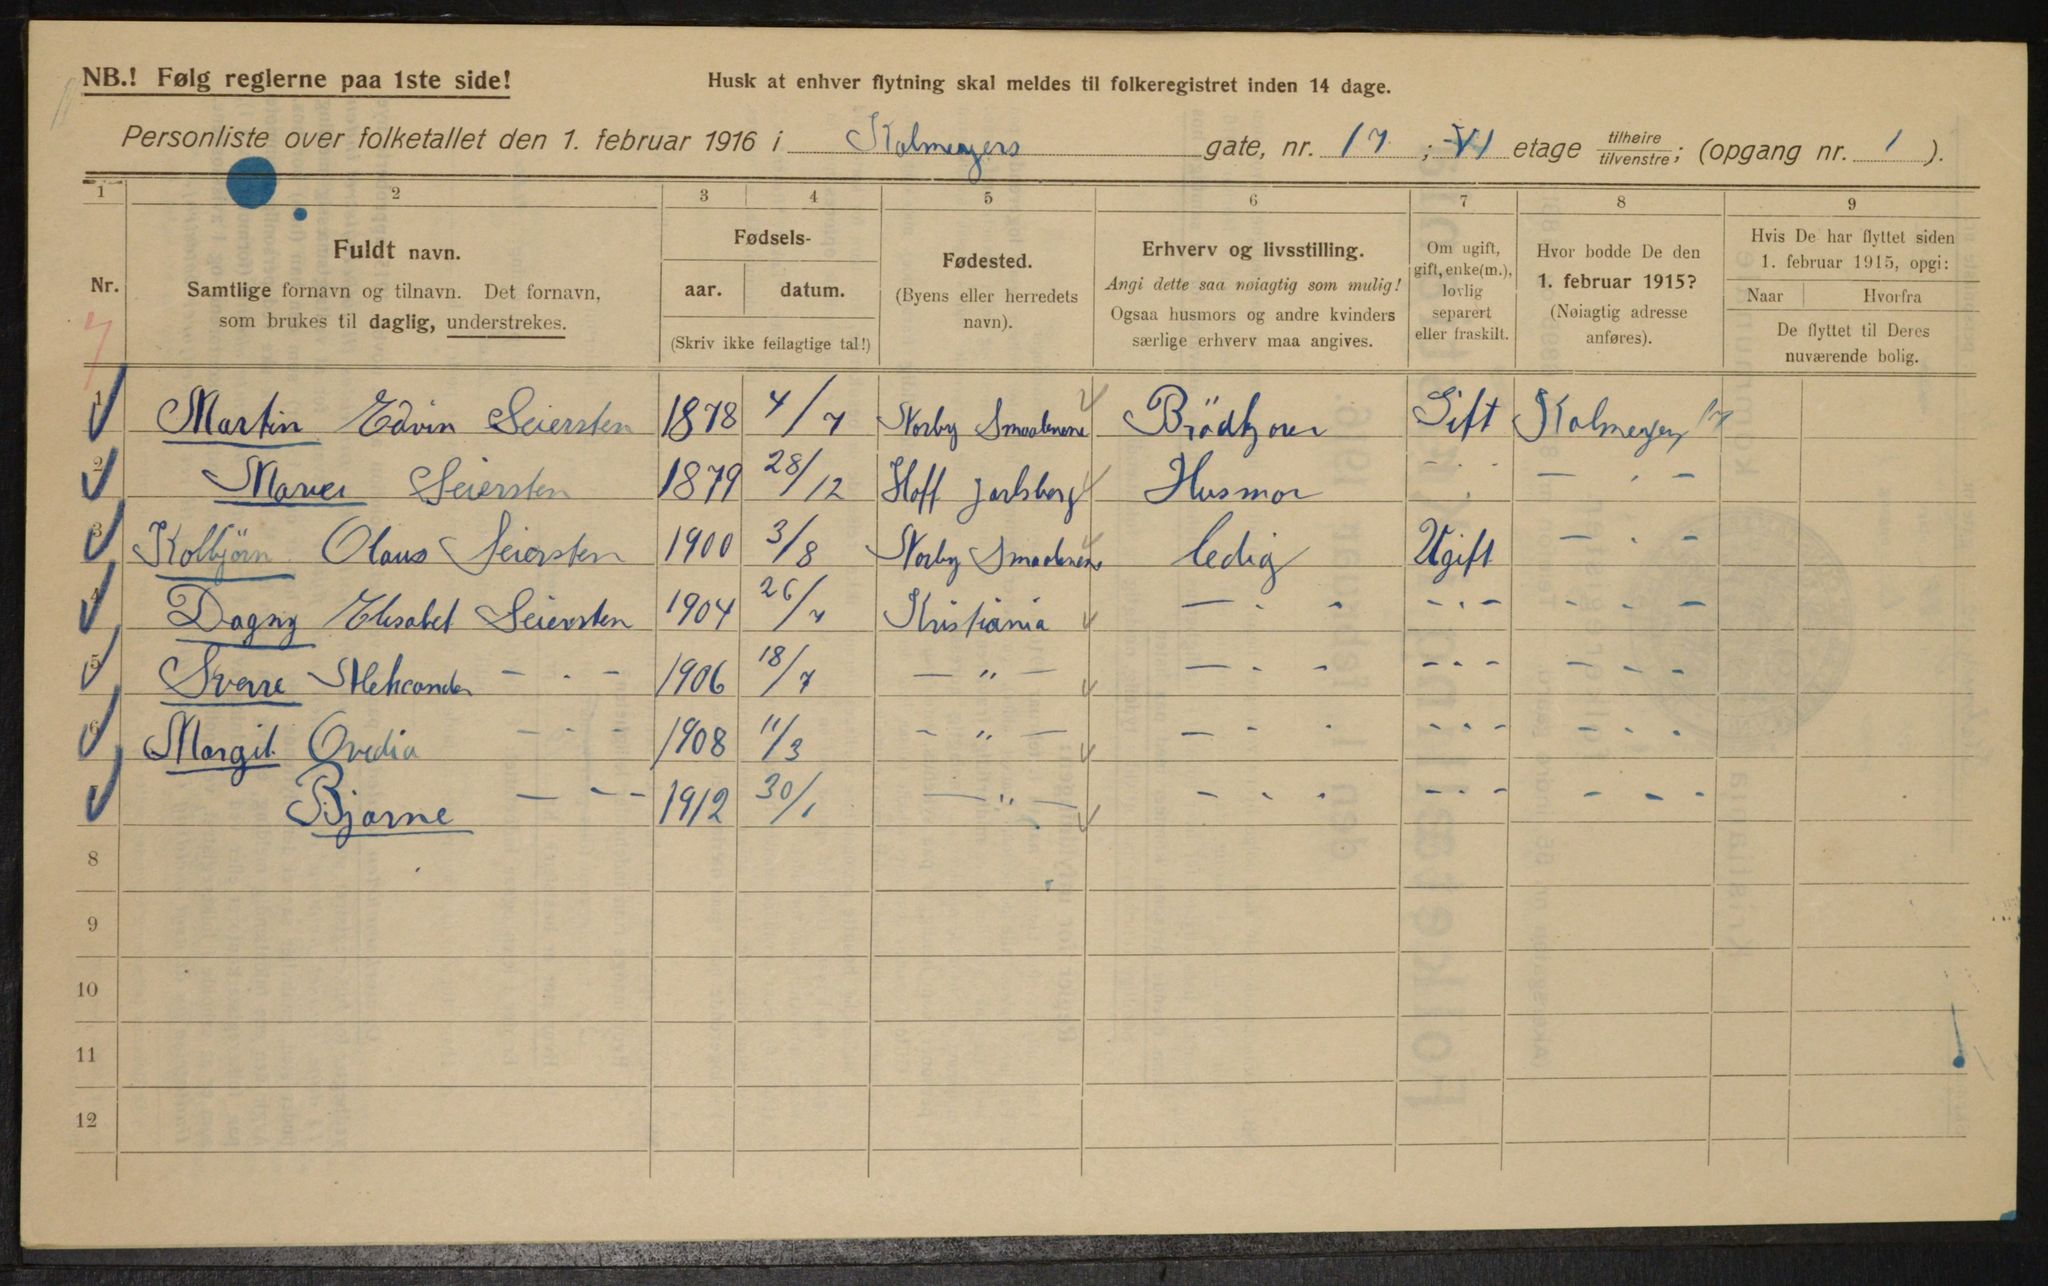 NB.! Følg reglerne paa 1ste side!
Husk at enhver flytning skal meldes til folkeregistret inden 14 dage.
Personliste over folketallet den 1. februar 1916 i Kalmeyers gate, nr. 17 ; VI etage tilhøire/tilvenstre; (opgang nr. 1 ).
1 2 3 4 5 6 7 8 9
Nr.
Fuldt navn.
Samtlige fornavn og tilnavn. Det fornavn,
som brukes til daglig, understrekes.
Fødsels-
aar. datum.
(Skriv ikke feilagtige tal!)
Fødested.
(Byens eller herredets
navn).
Erhverv og livsstilling.
Angi dette saa nøiagtig som mulig!
Ogsaa husmors og andre kvinders
særlige erhverv maa angives.
Om ugift,
gift, enke(m.),
lovlig
separert
eller fraskilt.
Hvor bodde De den
1. februar 1915?
(Nøiagtig adresse
anføres).
Hvis De har flyttet siden
1. februar 1915, opgi:
Naar Hvorfra
De flyttet til Deres
nuværende bolig.
1 Martin Edvin Seiersten 1878 4/7 Norby Smaalenene Brödkjører Gift Kalmeyerg 17
2 Seiersten 1879 28/12 Hoff Jarlsberg Husmor - . - — . -
3 Kolbjörn Olaus Seiersten 1900 3/8 Norby Smaalenene ledig Ugift — . -
4 Dagny Elisabet Seiersten 1904 26/7 Kristiania — - - - - - - - -
5 Sverre Aleksander — - - 1906 18/7 — " — — - - - - - - - -
6 Margit Ovedia — - - 1908 11/3 - " — — - - - - - - - -
Bjarne — - - 1912 30/1 — " — - - - - - - - - -
8
9
10
11
12